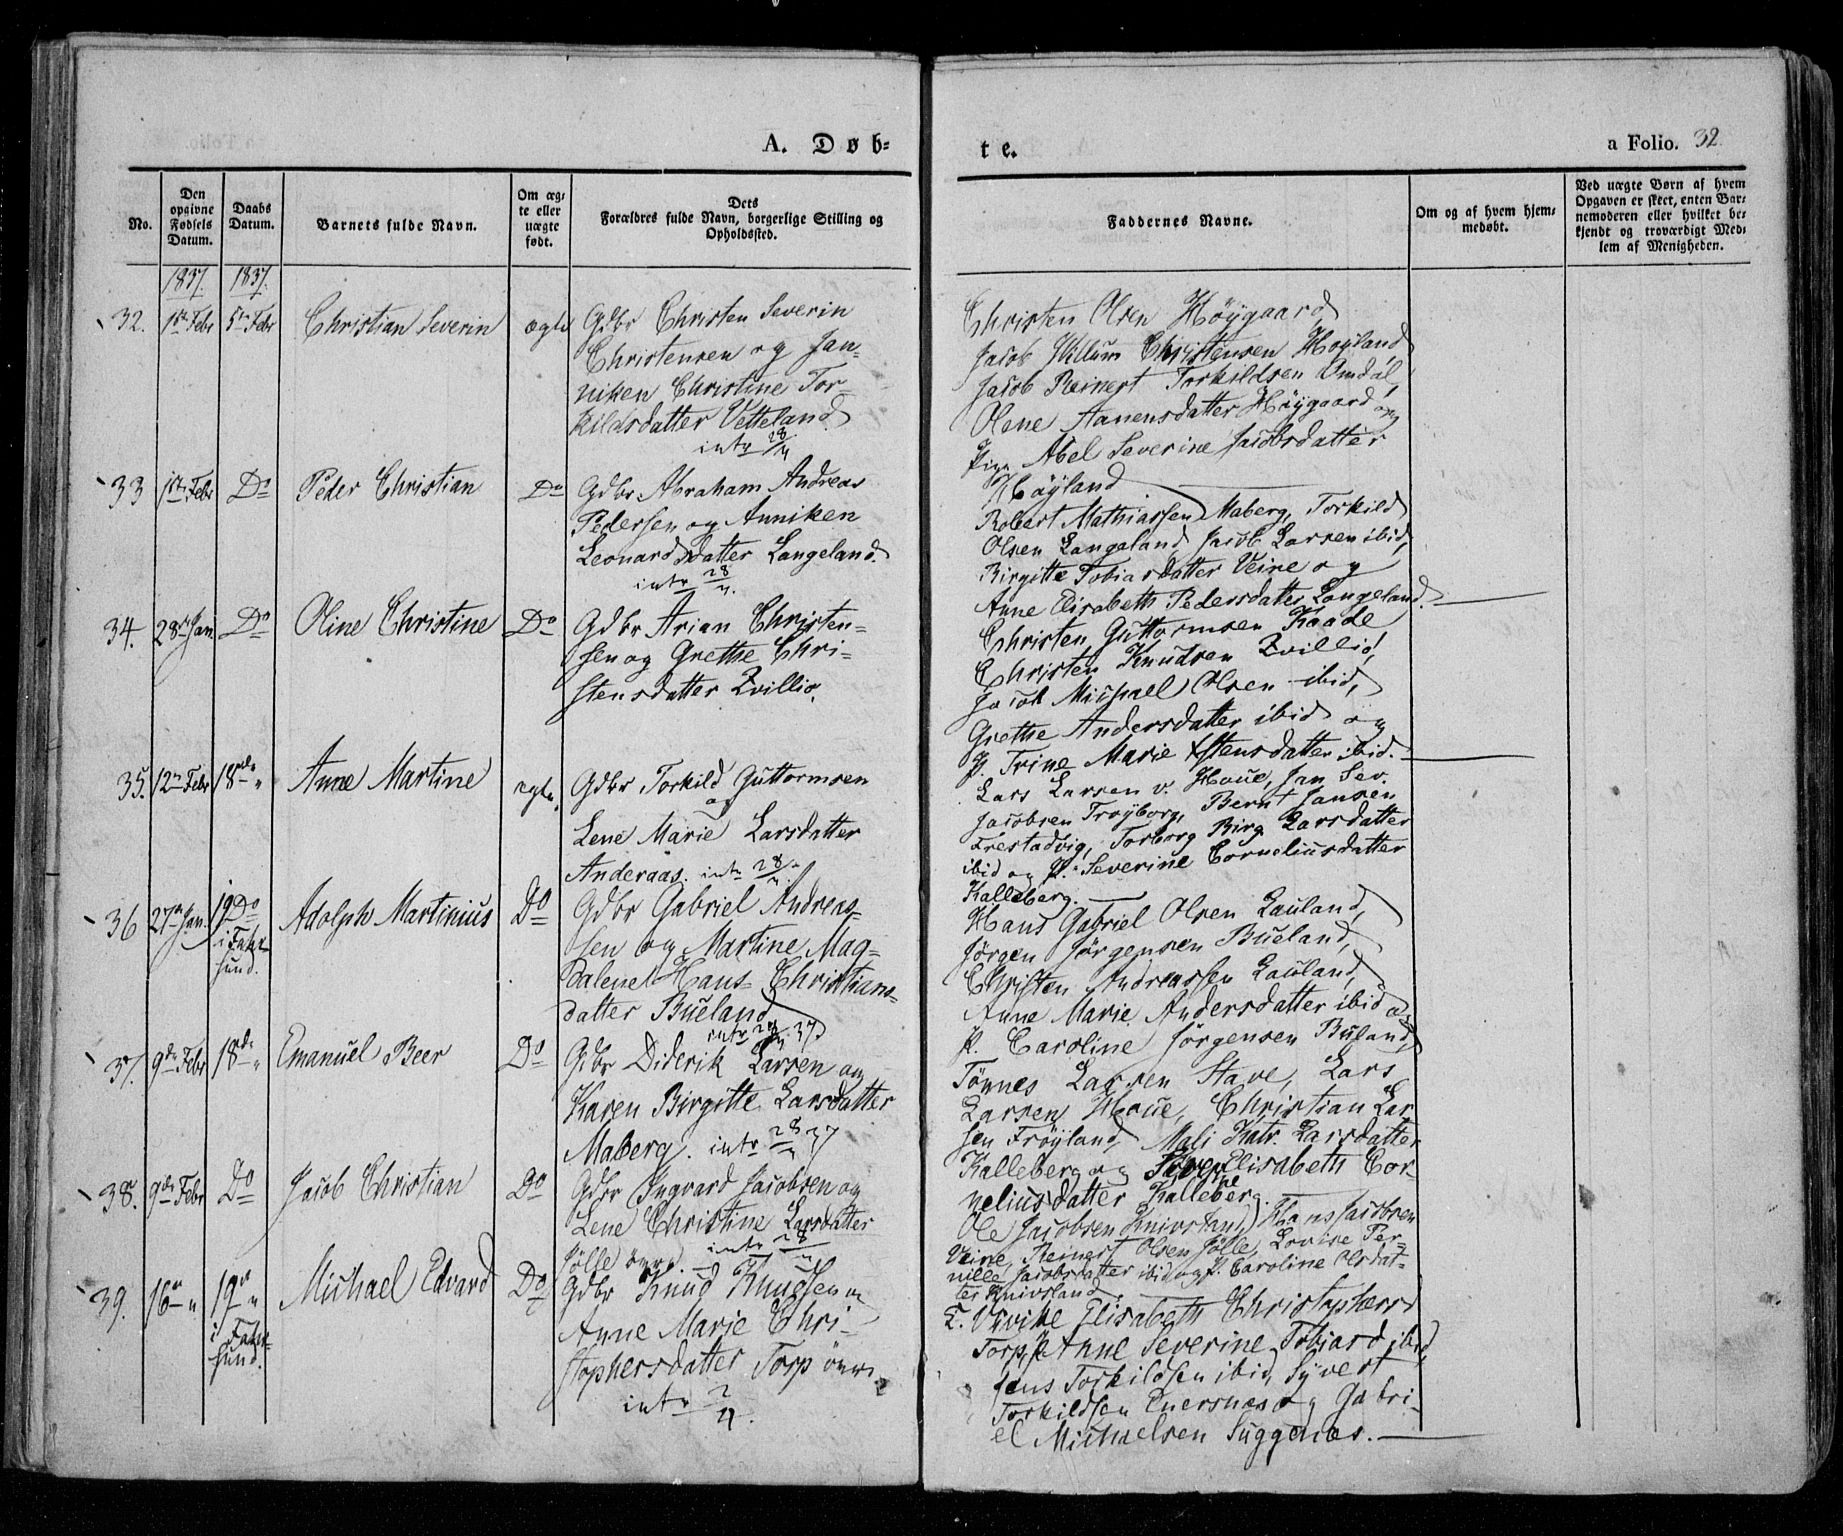 A. Døb=
te.
a Folio. 32
No.
Den opgivne Fødsels Datum.
Daabs Datum.
Barnets fulde Navn.
Om æg=
te eller
uægte
født.
Dets
Forældres fulde Navn, borgerlige Stilling og
Opholdssted.
Faddernes Navne.
Om og af hvem hjem=
medøbt.
Ved uægte Børn af hvem
Opgaven er skeet, enten Bar=
nemoderen eller hvilket be=
kjendt og troværdigt Med=
lem af Menigheden.
1837. 1837.
32. 1ste Febr 5te Febr Christian Severin ægte
Gdbr Christen Severin
Christensen og Jan-
niken Christine Tor-
kildsdatter Vetteland
intr 28/4
Christen Olsen Höygaard
Jacob Willum Christensen Höyland
Jacob Reinert Torkildsen Omdal,
Olene Aanensdatter Höygaard og
Pige Abel Severine Jacobsdatter
Höyland
33 1ste Febr Do Peder Christian Do
Gdbr Abraham Andreas
Pedersen og Anniken
Leonardsdatter Langeland.
intr 28/4.
Robert Mathiassen Maberg, Torkild
Olsen Langeland, Jacob Larsen ibid,
Birgitte Tobiasdatter Veine og
Anne Elisabeth Pedersdatter Langeland.
34. 28 Jan Do Oline Christine Do
Gdbr Arian Christen-
sen og Grethe Chri-
stensdatter Qvillio.
Christen Guttormsen Kaade
Christen Knudsen Qvillio,
Jacob Michael Olsen ibid,
Grethe Andersdatter ibid og
P. Trine Marie Estensdatter ibid.
35. 12te Febr 18de " Anne Martine ægte.
Gdbr Torkild Guttormsen
og
Lene Marie Larsdatter
Anderaas. intr 28/4.
Lars Larsen v. Houe, Jan Sev.
Jacobsen Tröyborg, Bernt Jansen
Trestadvig, Torborg Birg. Larsdatter
ibid og P. Severine Corneliusdatter
Kalleberg.
36 27de Jan. 19 Do Adolph Martinius Do
i Fahr-
sund.
Gdbr Gabriel Andreas-
sen og Martine Mag-
dalene Hans Christians-
datter Büeland
Hans Gabriel Olsen Lauland,
Jörgen Jörgensen Büeland,
Christen Andreassen Lauland,
Anne Marie Andersdatter ibid og
P. Caroline Jörgensen Büland,
37. 9de Febr 18de " Emanuel Beer Do
Gdbr Diderik Larsen og
Karen Birgitte Larsdatter
Maberg. intr 28/4 37
Tönnes Larsen Stave, Lars
Larsen Houe, Christian Lar-
sen Fröyland, Mali Katr. Larsdatter
Kalleberg og Elisabeth Cor-
neliusdatter Kalleberg.
38. 9de Febr Do Jacob Christian Do
Gdbr Ingvard Jacobsen og
Lene Christine Larsdatter
Jölle övre. intr 28/4
Ole Jacobsen Knivsland, Hans Jacobsen
Veine, Reinert Olsen Jölle, Lovise Per-
nille Jacobsdatter ibid og P. Caroline Olsdat-
ter Knivsland.
39. 16de " 19de " Michael Edvard Do
i Fahr-
sund.
Gdbr Knud Knudsen og
Anne Marie Chri-
stophersdatter Torp övre
intr 2/4.
Elisabeth Christophersd
Torp, P. Anne Severine Tobiasd ibid,
Jens Torkildsen ibid, Syvert
Torkildsen Enersnes og Gabri-
el Michaelsen Süggenæs.